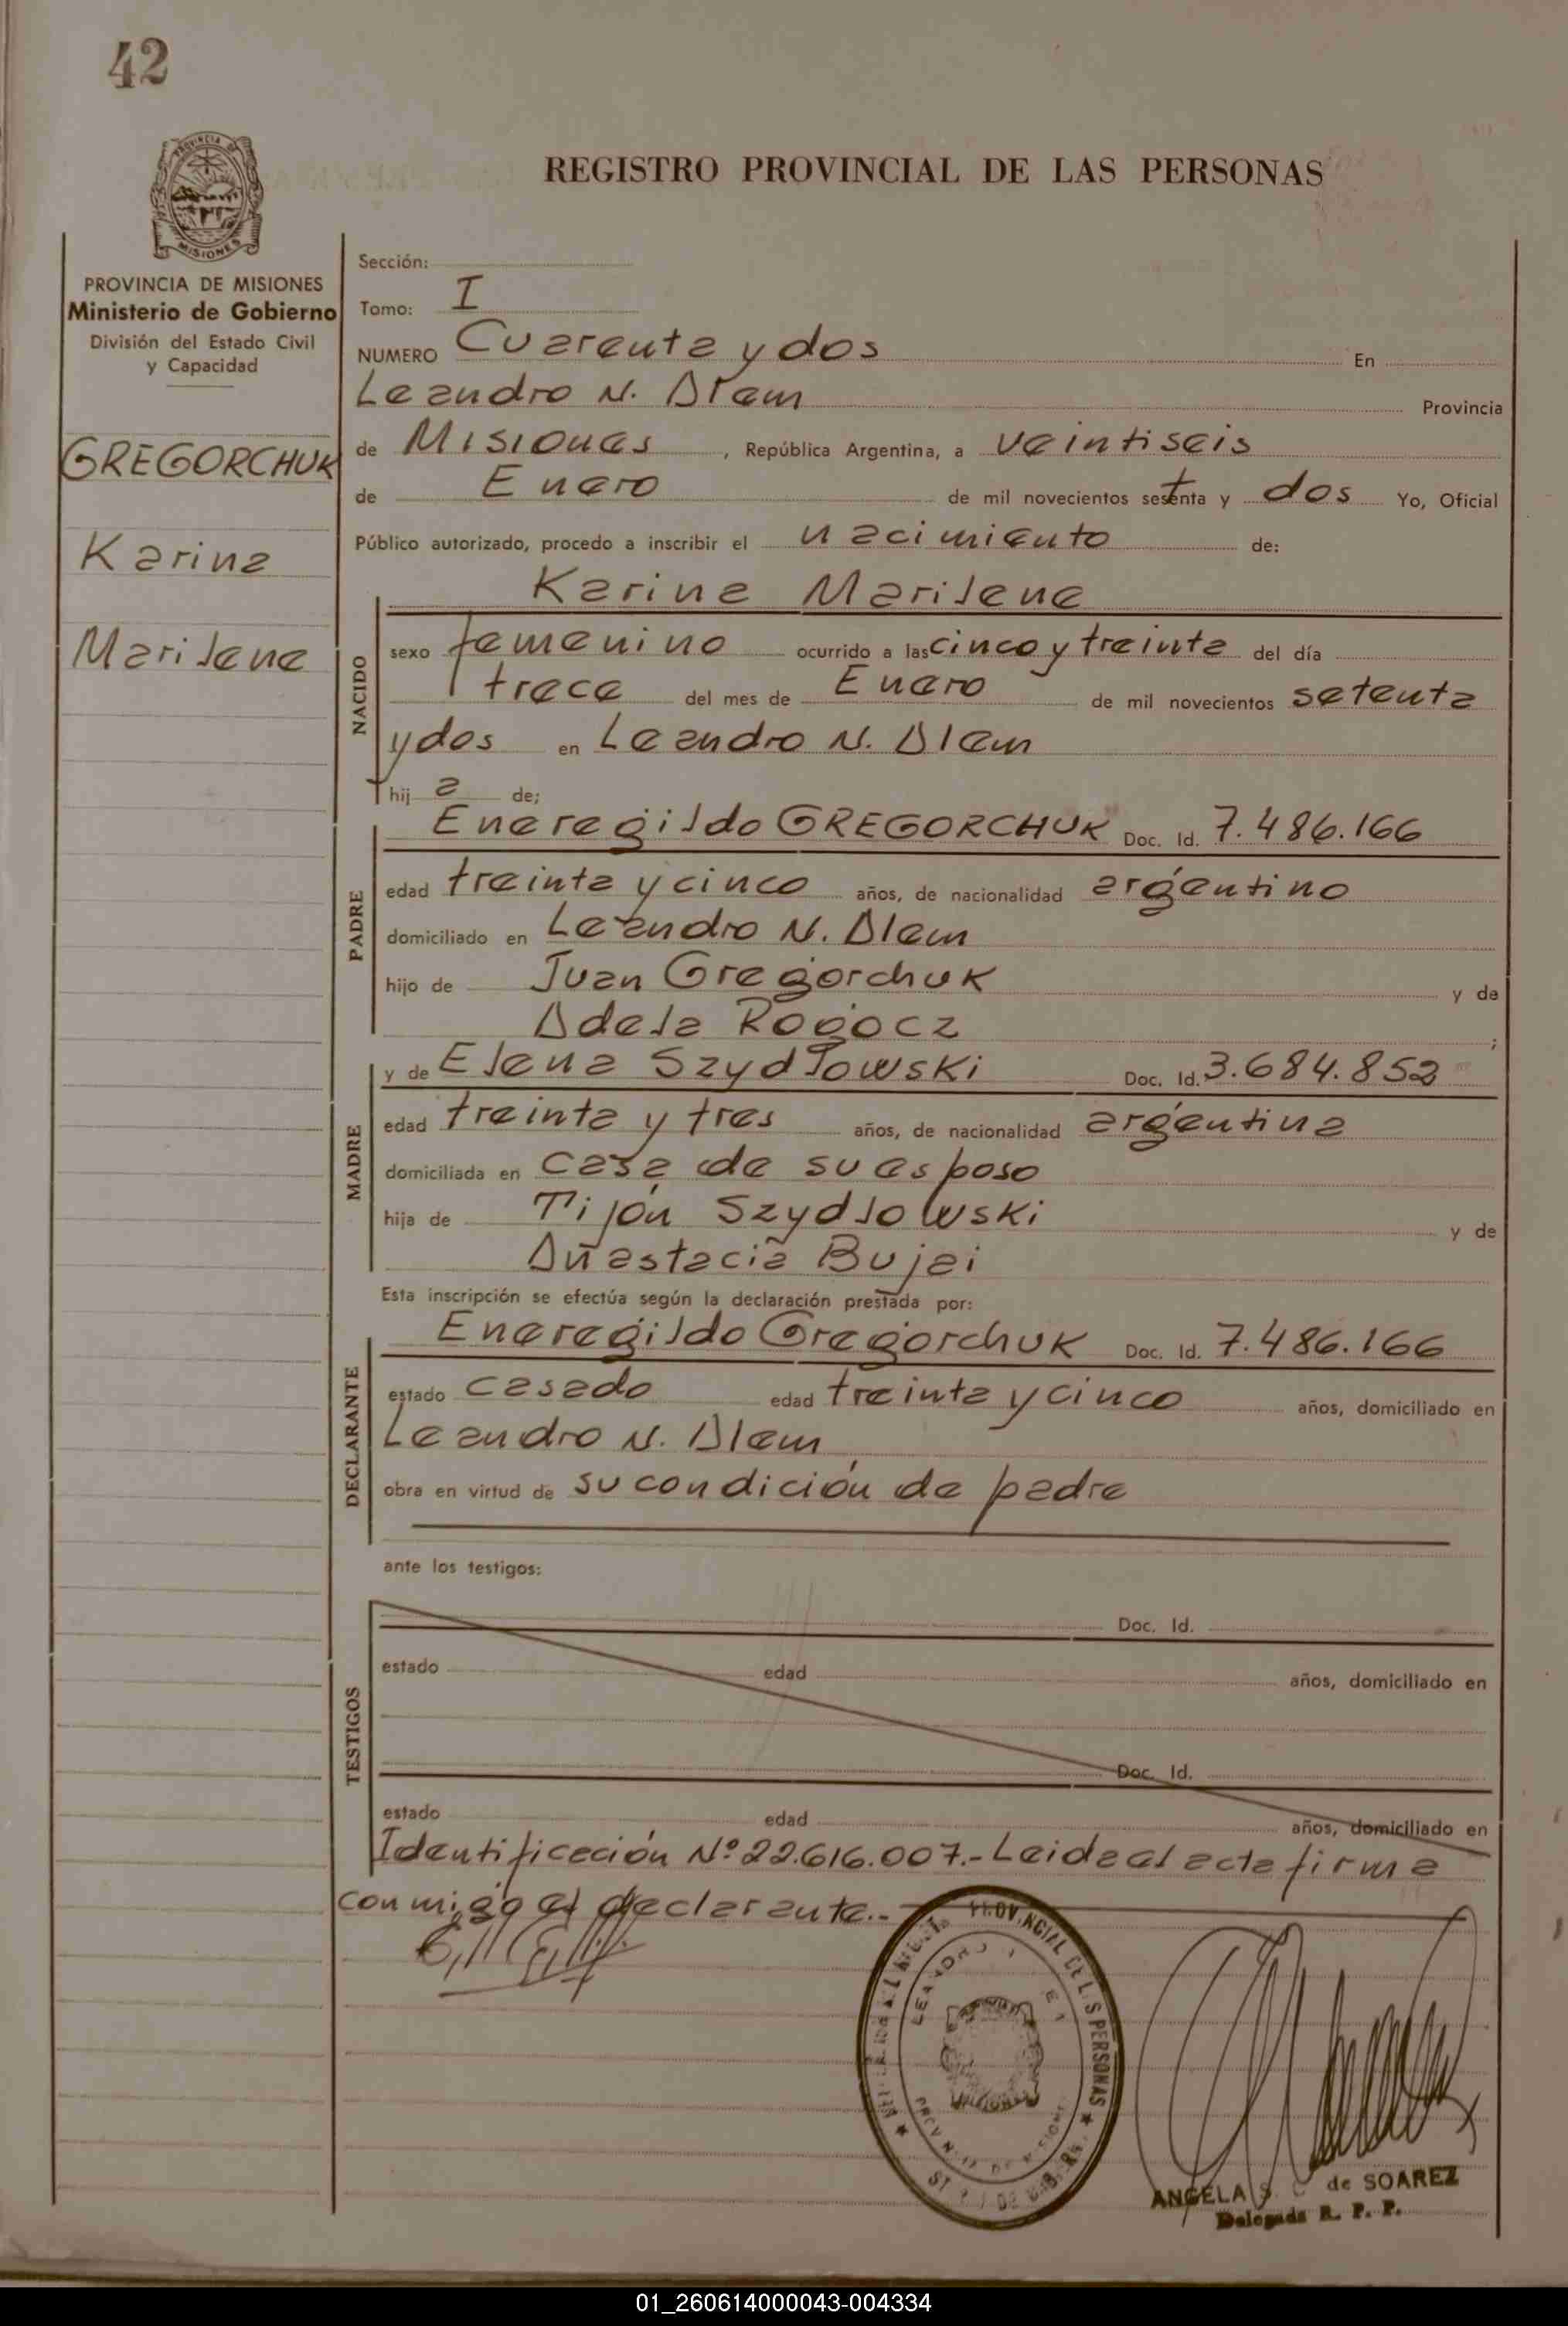 42
PROVINCIA DE
MISIONES
REGISTRO PROVINCIAL DE LAS PERSONAS
PROVINCIA DE MISIONES
Ministerio de Gobierno
División del Estado Civil
y Capacidad
GREGORCHUK
Karina
Marilene
Sección:
Tomo: I
NUMERO Cuarenta y dos En
Leandro N. Alem Provincia
de Misiones, República Argentina, a veintiseis
de Enero de mil novecientos setenta y dos Yo, Oficial
Público autorizado, procedo a inscribir el nacimiento de:
Karina Marilene
NACIDO
sexo femenino ocurrido a las cinco y treinta del día
trece del mes de Enero de mil novecientos setenta
y dos en Leandro N. Alem
hij a de;
PADRE
Eneregildo GREGORCHUK Doc. Id. 7.486.166
edad treinta y cinco años, de nacionalidad argentino
domiciliado en Leandro N. Alem
hijo de Juan Gregorchuk y de
Adela Rogocz ;
MADRE
y de Elena Szydłowski Doc. Id. 3.684.852
edad treinta y tres años, de nacionalidad argentina
domiciliada en casa de su esposo
hija de Tijón Szydlowski y de
Anastacia Bujai
Esta inscripción se efectúa según la declaración prestada por:
DECLARANTE
Eneregildo Gregorchuk Doc. Id. 7.486.166
estado casado edad treinta y cinco años, domiciliado en
Leandro N. Alem
obra en virtud de su condición de padre
ante los testigos:
TESTIGOS
Doc. Id.
estado edad años, domiciliado en
Doc. Id.
estado edad años, domiciliado en
Identificación Nº 22.616.007.- Leida el acta firma
conmigo el declarante.-
PROVINCIAL DE LAS PERSONAS
LEANDRO
ANGELA S. de SOAREZ
Delegada R. P. P.
01_260614000043-004334